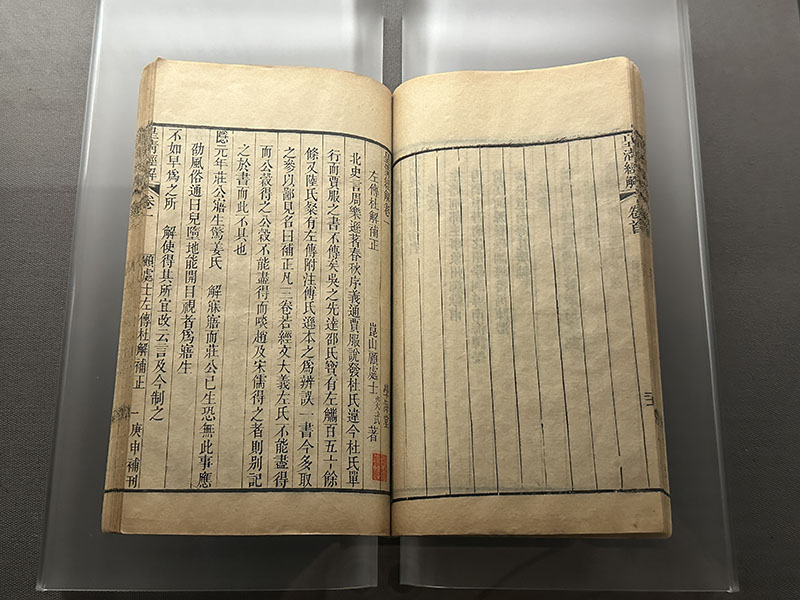 皇清經解 卷首
皇清經解卷一 學海堂
左傳杜解補正 崑山顧處士炎武著
北史言周樂遜著春秋序義通賈服說發杜氏違今杜氏單
行而賈服之書不傳矣吳之先達邵氏寶有左觿百五十餘
條又陸氏粲有左傳附注傅氏遜本之爲辨誤一書今多取
之參以鄙見名曰補正凡三卷若經文大義左氏不能盡得
而公穀得之公穀不能盡得而啖趙及宋儒得之者則别記
之於書而此不具也
隱元年莊公寤生驚姜氏 解寐寤而莊公已生恐無此事應
劭風俗通曰兒墮地能開目視者爲寤生
不如早爲之所 解使得其所宜改云言及今制之
皇清經解 卷一 顧處士左傳杜解補正 一 庚申補刊